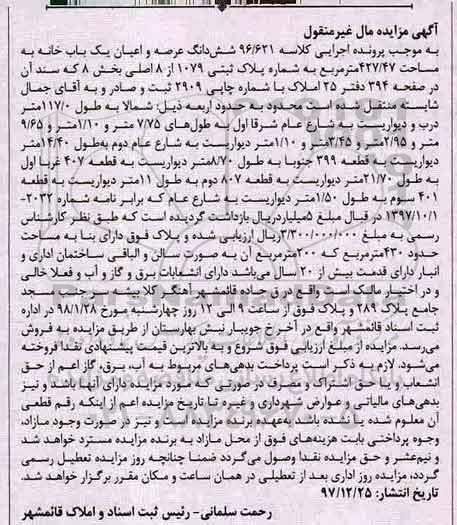 آگهی مزایده مال غیرمنقول
به موجب پرونده اجرایی کلاسه ۹۶/۶۲۱ شش‌دانگ عرصه و اعیان یک باب خانه به
مساحت ۴۲۷/۴۷مترمربع به شماره پلاک ثبتی ۱۰۷۹ از ۸ اصلی بخش ۸ که سند آن
در صفحه ۳۹۴ دفتر ۲۵ املاک با شماره چاپی ۲۹۰۹ ثبت و صادر و به آقای جمال
شایسته منتقل شده است محدود به حدود اربعه ذیل: شمالا به طول ۱۱/۷۰متر
درب و دیواریست به شارع عام شرقا اول به طول‌های ۷/۷۵ متر و ۱/۱۰متر و ۹/۶۵
متر و ۲/۹۵متر و ۳/۴۵متر و ۱/۱۰متر دیواریست به شارع عام دوم به‌طول ۱۴/۴۰متر
دیواریست به قطعه ۳۹۹ جنوبا به طول ۸/۷۰متر دیواریست به قطعه ۴۰۷ غربا اول
به طول ۲۱/۷۰متر دیواریست به قطعه ۸۰۷ دوم به طول ۱۱متر دیواریست به قطعه
۴۰۱ سوم به طول ۱/۵۰متر دیواریست به شارع عام که برابر نامه شماره ۲۰۳۲-
۱۳۹۷/۱۰/۱ در قبال مبلغ ۵میلیاردریال بازداشت گردیده است که طبق نظر کارشناس
رسمی به مبلغ ۳/۳۰۰/۰۰۰/۰۰۰ریال ارزیابی شده و پلاک فوق دارای بنا به مساحت
حدود ۴۳۰مترمربع که ۲۰۰مترمربع آن به صورت سالن و الباقی ساختمان اداری و
انبار دارای قدمت بیش از ۲۰ سال می‌باشد دارای انشعابات برق و گاز و آب و فعلا خالی
و در اختیار مالک است واقع در ق جاده قائمشهر آهنگر کلا بیشه سر جنب مسجد
جامع پلاک ۲۸۹ و پلاک فوق از ساعت ۹ الی ۱۲ روز چهارشنبه مورخ ۹۸/۱/۲۸ در اداره
ثبت اسناد قائمشهر واقع در آخر خ جویبار نبش بهارستان از طریق مزایده به فروش
می‌رسد. مزایده از مبلغ ارزیابی فوق شروع و به بالاترین قیمت پیشنهادی نقدا فروخته
می‌شود. لازم به ذکر است پرداخت بدهی‌های مربوط به آب، برق، گاز اعم از حق
انشعاب و یا حق اشتراک و مصرف در صورتی که مورد مزایده دارای آنها باشد و نیز
بدهی‌های مالیاتی و عوارض شهرداری و غیره تا تاریخ مزایده اعم از اینکه رقم قطعی
آن معلوم شده یا نشده باشد بعهده برنده مزایده است و نیز در صورت وجود مازاد،
وجوه پرداختی بابت هزینه‌های فوق از محل مازاد به برنده مزایده مسترد خواهد شد
و نیم‌عشر و حق مزایده نقدا وصول می‌گردد ضمنا چنانچه روز مزایده تعطیل رسمی
گردد، مزایده روز اداری بعد از تعطیلی در همان ساعت و مکان مقرر برگزار خواهد شد.
تاریخ انتشار: ۹۷/۱۲/۲۵
رحمت سلمانی- رئیس ثبت اسناد و املاک قائمشهر